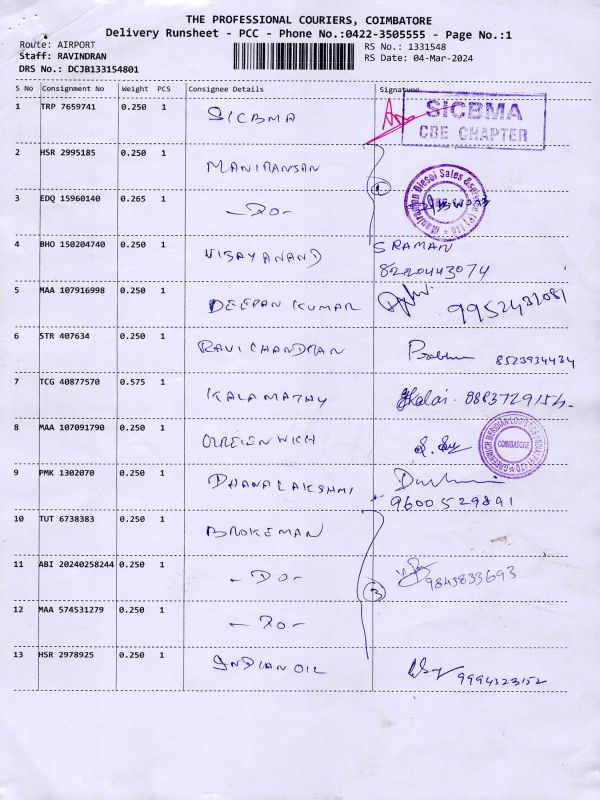 THE PROFESSIONAL COURIERS, COIMBATORE
Delivery Runsheet - PCC - Phone No.:0422-3505555 - Page No.:1
Route: AIRPORT RS No.: 1331548
Staff: RAVINDRAN RS Date: 04-Mar-2024
DRS No.: DCJB133154801
S No Consignment No Weight PCS Consignee Details Signature
1 TRP 7659741 0.250 1 SICBMA
SICBMA
CBE CHAPTER
2 HSR 2995185 0.250 1 MANIRANJAN
3 EDQ 15960140 0.265 1 -DO-
4 BHO 150204740 0.250 1 VIJAYANAND S RAMAN
8220443074
5 MAA 107916998 0.250 1 DEEPAN KUMAR 9952432081
6 STR 407634 0.250 1 RAVICHANDRAN Prabhu 8523934434
7 TCG 40877570 0.575 1 KALAMATHY Kalai. 8883729154
8 MAA 107091790 0.250 1 GREENWICH
COIMBATORE
9 PMK 1302070 0.250 1 DHANALAKSHMI
9600529891
10 TUT 6738383 0.250 1 BROKEMAN
11 ABI 20240258244 0.250 1 -DO- 9843833693
3
12 MAA 574531279 0.250 1 -DO-
13 HSR 2978925 0.250 1 INDIAN OIL 9994323152